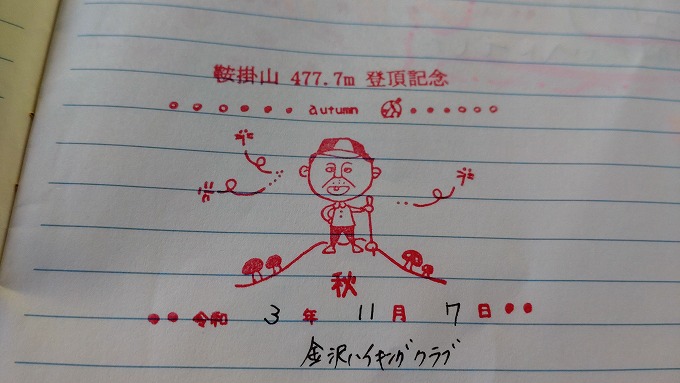 鞍掛山 477.7m 登頂記念
autumn
秋
令和 3年 11月 7日
金沢ハイキングクラブ